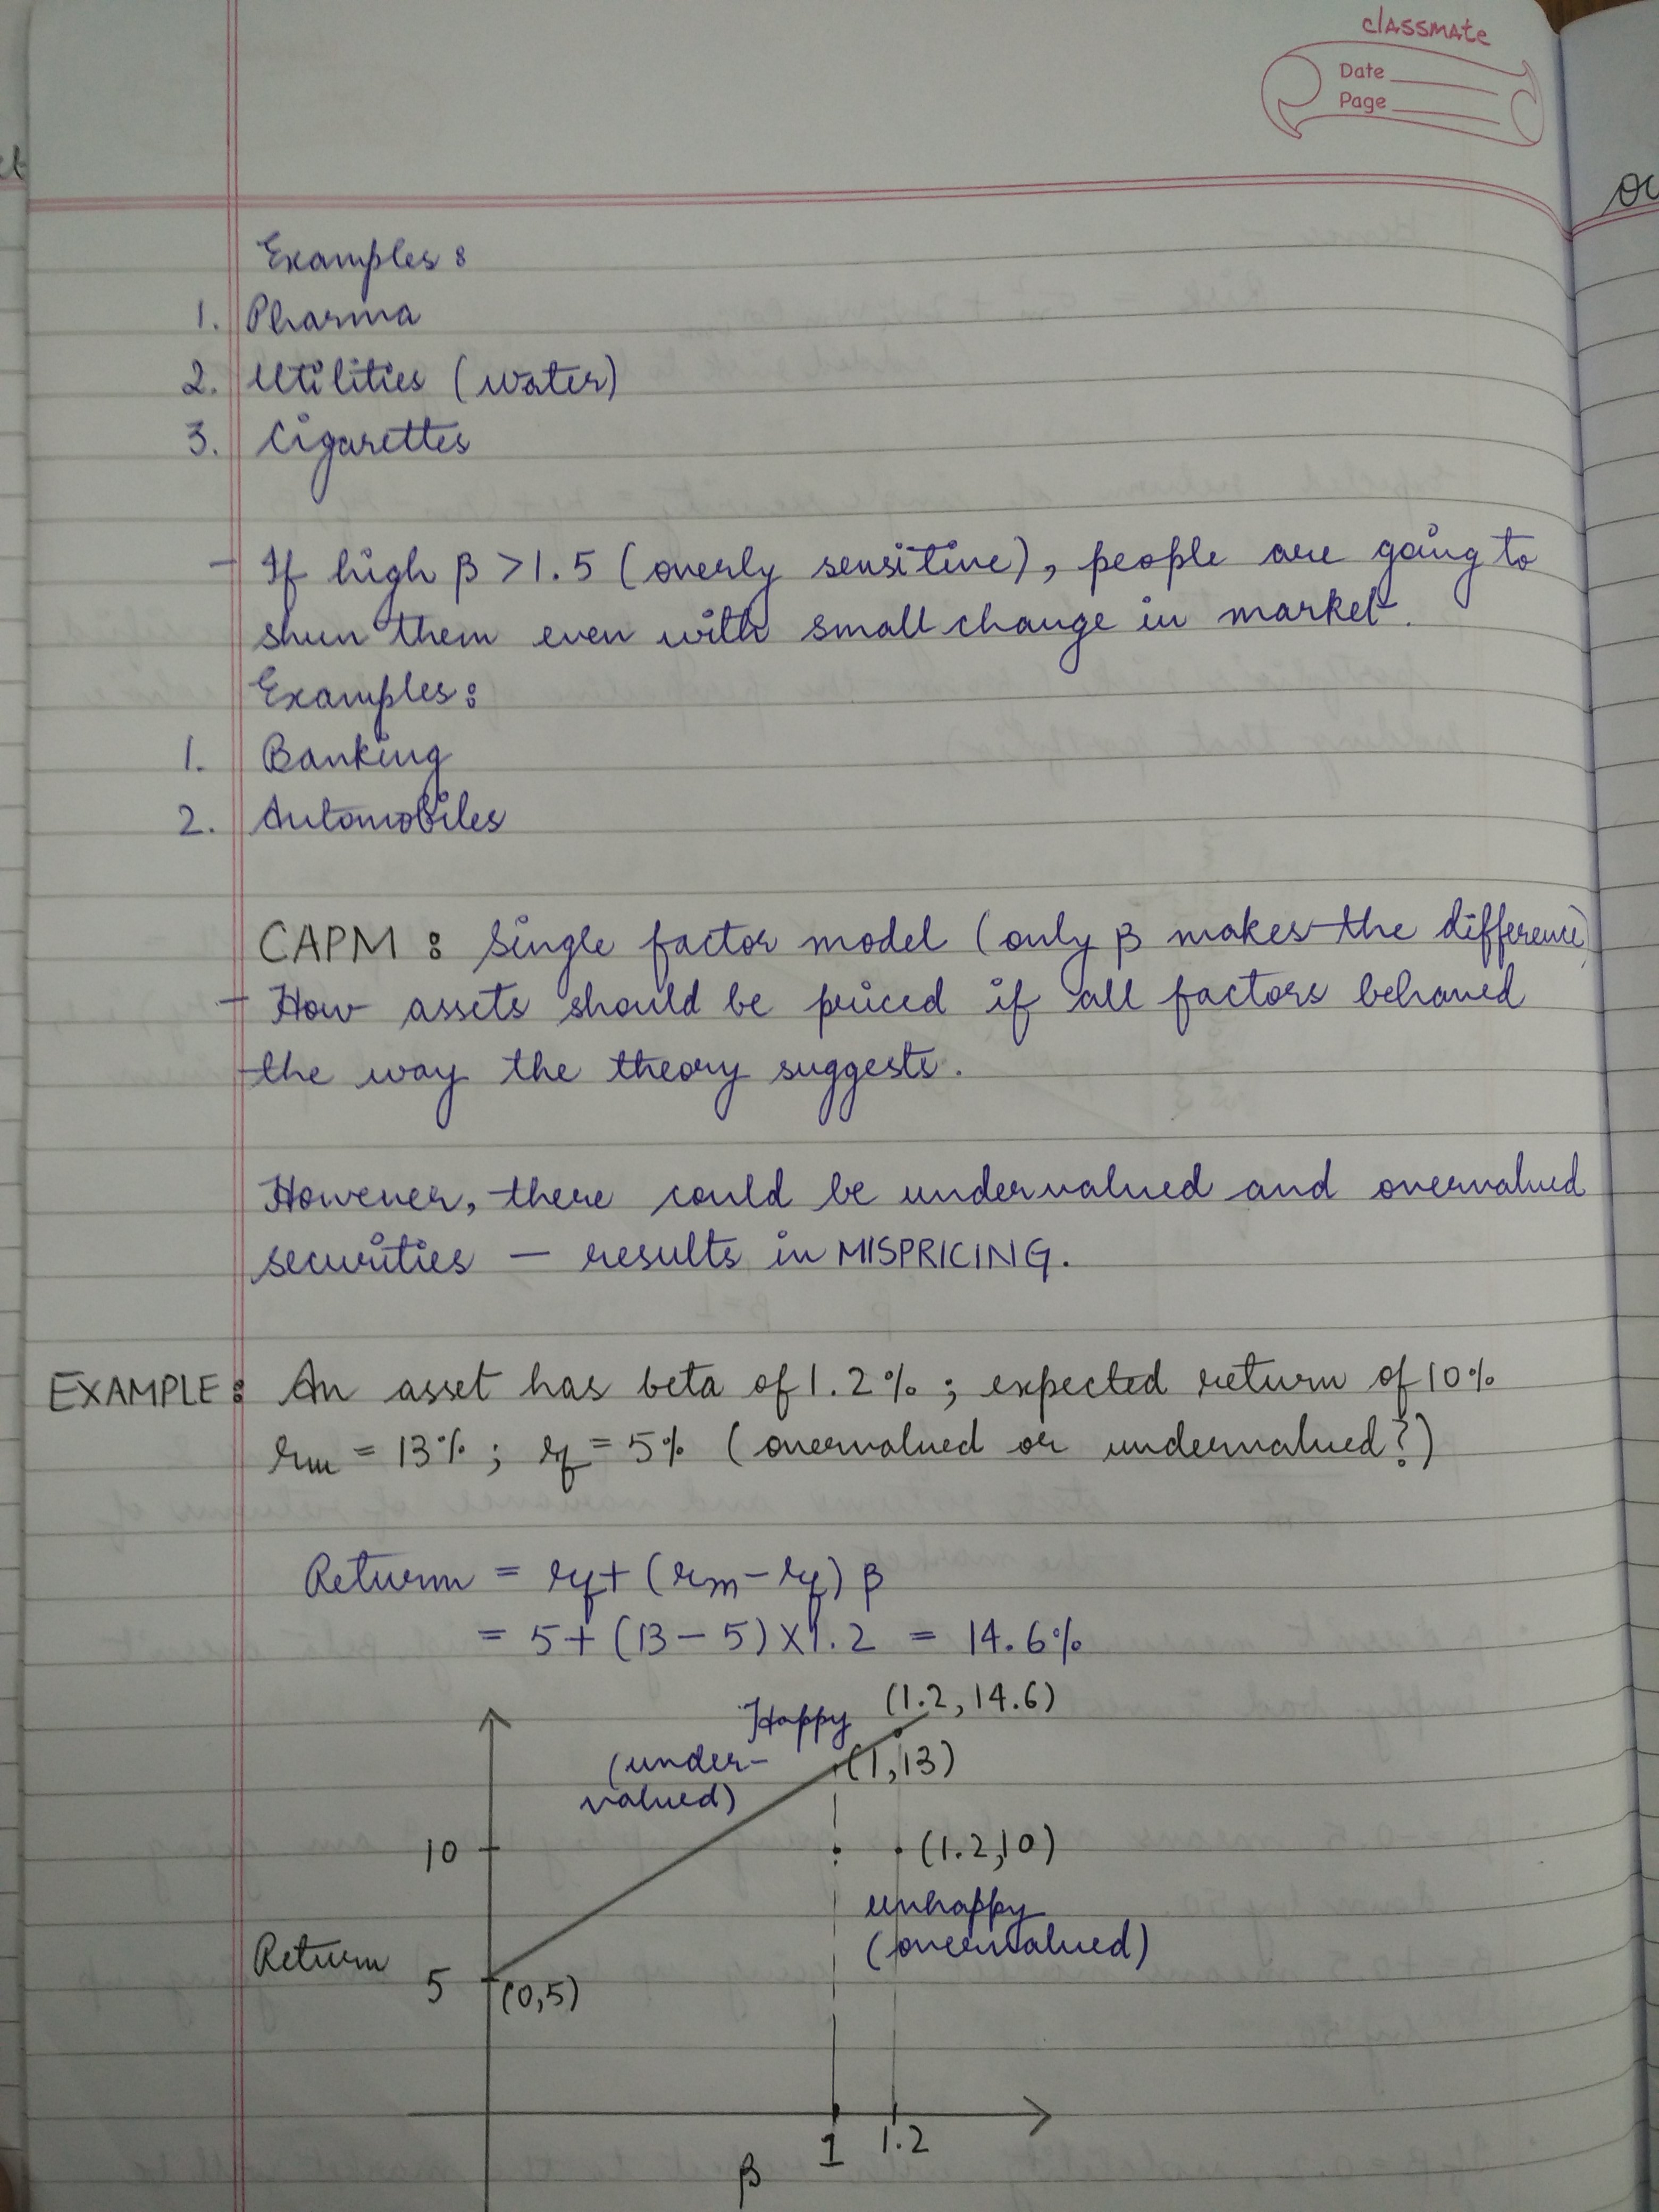 classmate
Date
Page
Examples :
1. Pharma
2. Utilities (water)
3. Cigarettes
- If high β > 1.5 (overly sensitive), people are going to
shun them even with small change in market.
Examples :
1. Banking
2. Automobiles
CAPM : Single factor model (only β makes the difference)
- How assets should be priced if all factors behaved
the way the theory suggests.
However, there could be undervalued and overvalued
securities — results in MISPRICING.
EXAMPLE : An asset has beta of 1.2% ; expected return of 10%
rm = 13% ; rf = 5% (overvalued or undervalued?)
Return = rf + (rm - rf) β
= 5 + (13 - 5) X 1.2 = 14.6%
Happy (1.2, 14.6)
(under- (1, 13)
valued)
10 (1.2, 10)
unhappy
(overvalued)
Return
5 (0,5)
1 1.2
β